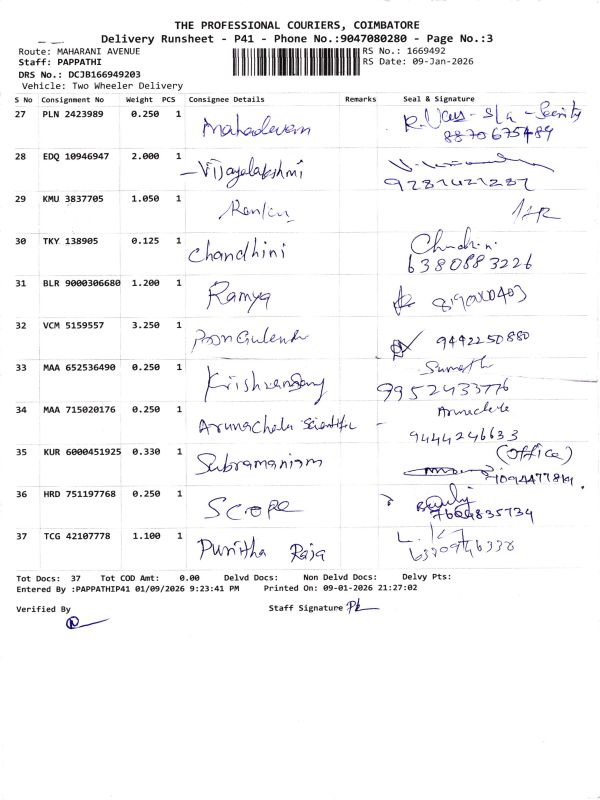 THE PROFESSIONAL COURIERS, COIMBATORE
Delivery Runsheet - P41 - Phone No.:9047080280 - Page No.:3
Route: MAHARANI AVENUE
RS No.: 1669492
Staff: PAPPATHI
RS Date: 09-Jan-2026
DRS No.: DCJB166949203
Vehicle: Two Wheeler Delivery
S No Consignment No Weight PCS Consignee Details Remarks Seal & Signature
27 PLN 2423989 0.250 1 Mahadevan
8870675489
28 EDQ 10946947 2.000 1 Vijayalakshmi
29 KMU 3837705 1.050 1
30 TKY 138905 0.125 1 Chandhini
6380883226
31 BLR 9000306680 1.200 1 Ramya
32 VCM 5159557 3.250 1
9442250880
33 MAA 652536490 0.250 1
9952433776
34 MAA 715020176 0.250 1 Arunachala Scientific
9444246633
35 KUR 6000451925 0.330 1 Subramaniam (Office)
36 HRD 751197768 0.250 1 Scope
37 TCG 42107778 1.100 1 Punitha Raja
Tot Docs: 37 Tot COD Amt: 0.00 Delvd Docs: Non Delvd Docs: Delvy Pts:
Entered By :PAPPATHIP41 01/09/2026 9:23:41 PM Printed On: 09-01-2026 21:27:02
Verified By
Staff Signature